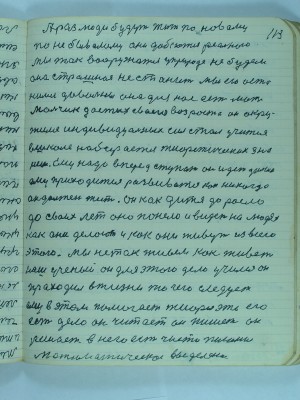 113
А раз люди будут жить по новому
по не бывалому они добьются реального
мы так вооружать природу не будем
она страшная не станет мы его оста
ними довольны она для нас есть мать
мальчик достиг своего возроста он окру
жили индивидуалных систам учится
в школе набирается теоретических зна
ний. ему надо вперед ступать он идет делать
ему приходится развиватся как никогда
он должен жить. он как дитя до росло
до своих лет оно поняло и видет на людях
как они делают и как они живут из всего
этого. мы не так живем как живет
наш ученый он для этого дело учился он
проходил в жизни то чего следует
ему в этом помогает теория это его
есть дело он читает он пишет он
решает в него есть чисто
математическое введение